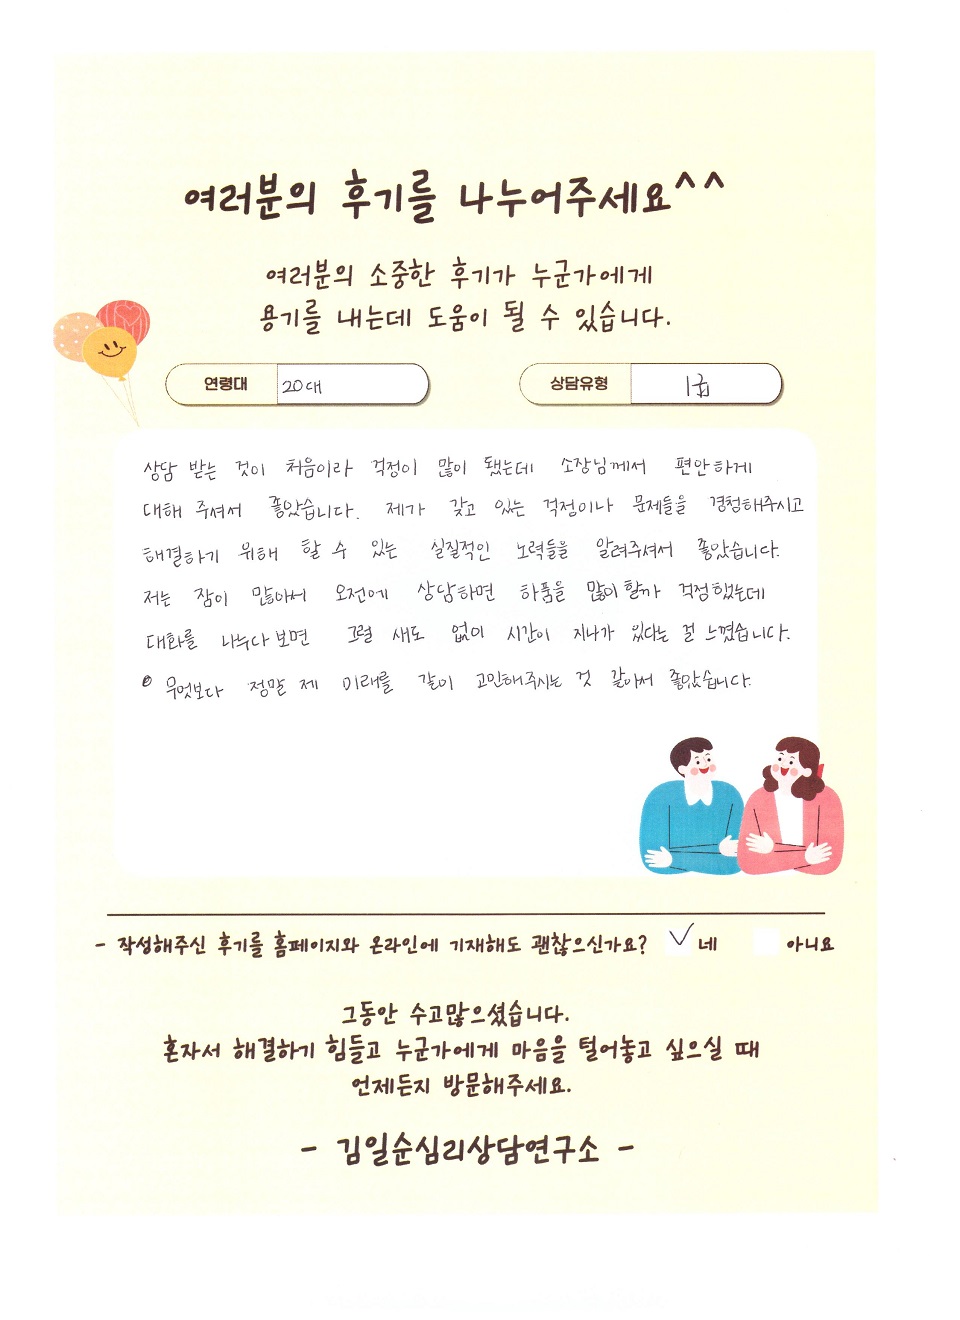 여러분의 후기를 나누어주세요^^
여러분의 소중한 후기가 누군가에게
용기를 내는데 도움이 될 수 있습니다.
연령대 20대 상담유형 1급
상담 받는 것이 처음이라 걱정이 많이 됐는데 소장님께서 편안하게
대해 주셔서 좋았습니다. 제가 갖고 있는 걱정이나 문제들을 경청해주시고
해결하기 위해 할 수 있는 실질적인 노력들을 알려주셔서 좋았습니다.
저는 잠이 많아서 오전에 상담하면 하품을 많이 할까 걱정했는데
대화를 나누다 보면 그럴 새도 없이 시간이 지나가 있다는 걸 느꼈습니다.
무엇보다 정말 제 미래를 같이 고민해주시는 것 같아서 좋았습니다.
- 작성해주신 후기를 홈페이지와 온라인에 기재해도 괜찮으신가요? 네 아니요
그동안 수고많으셨습니다.
혼자서 해결하기 힘들고 누군가에게 마음을 털어놓고 싶으실 때
언제든지 방문해주세요.
- 김일순심리상담연구소 -